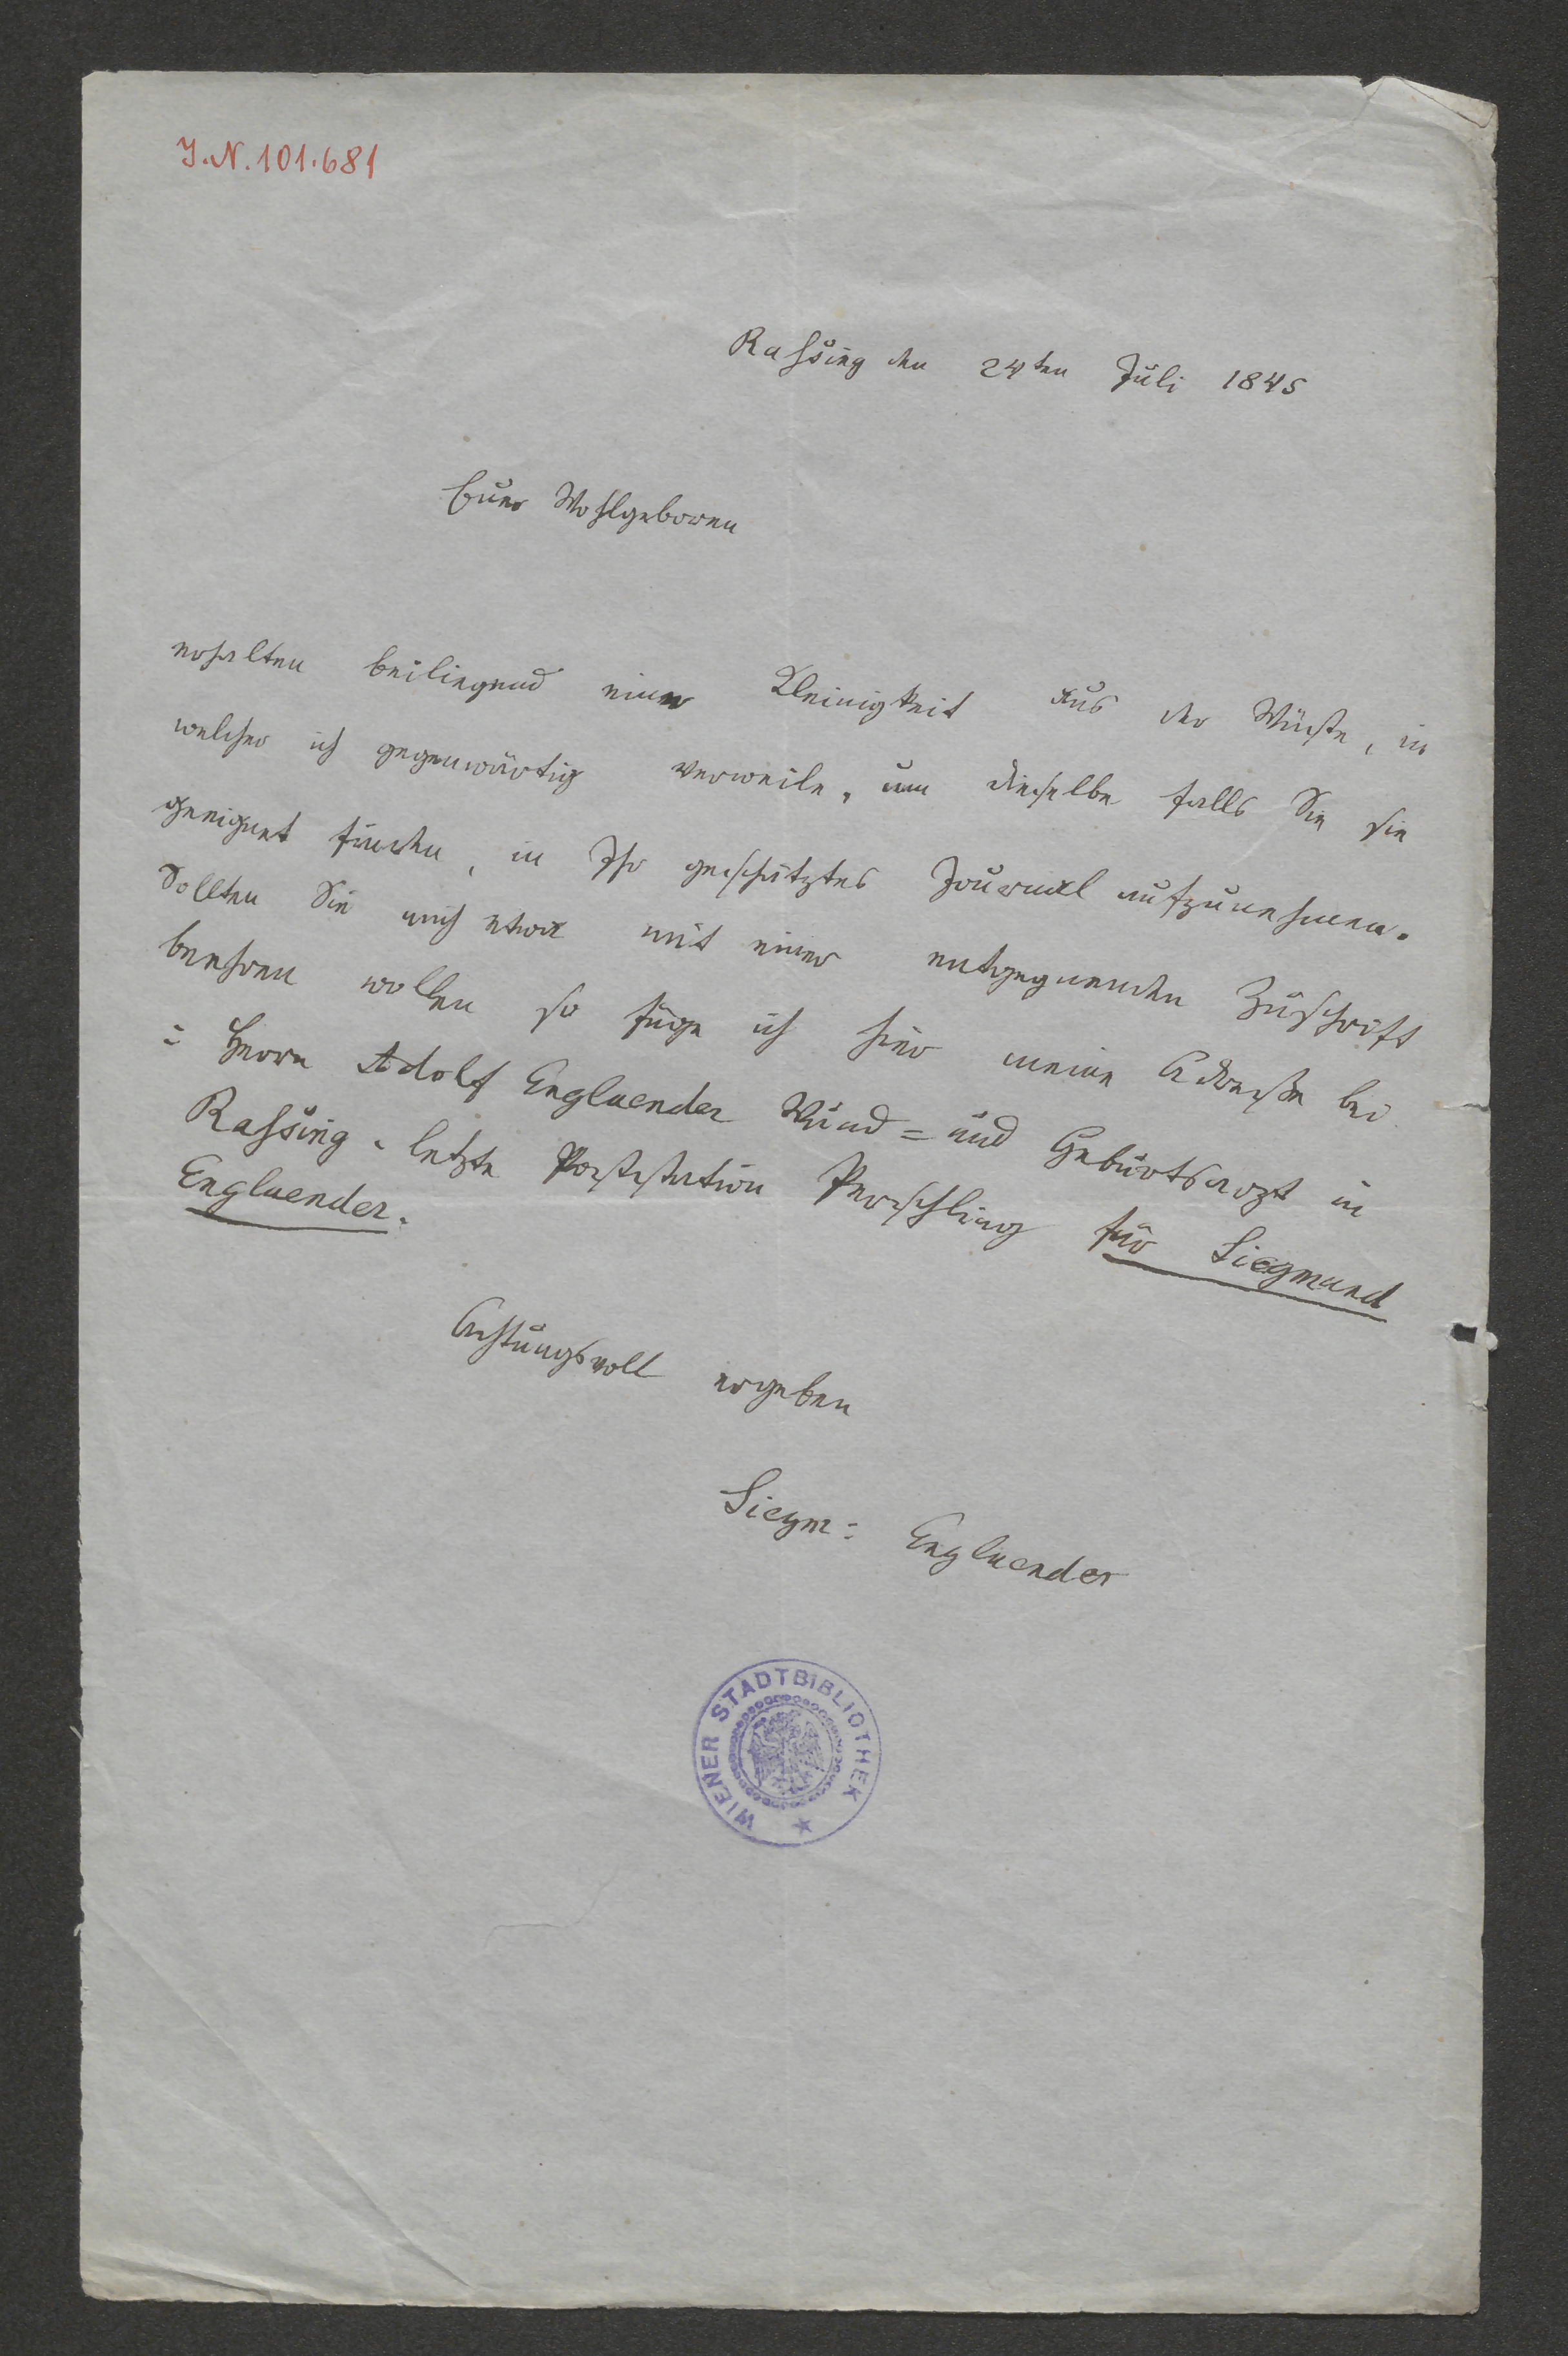 J.N.101.681
Rassing den 24ten Juli 1845
Euer Wohlgeboren
erhalten beiliegend eine Kleinigkeit aus der Wüste, in
welcher ich gegenwärtig verweile, um dieselbe falls Sie sie
geeignet finden, in Ihr geschätztes Journal aufzunehmen.
Sollten Sie mich etwa mit einer entgegnenden Zuschrift
beehren wollen so füge ich hier meine Adresse bei
: Herrn Adolf Englaender Wund= und Geburtsarzt in
Rassing. letzte Poststation Perschling für Siegmund
Englaender.
Achtungsvoll ergeben
Siegm: Englaender
WIENER STADTBIBLIOTHEK